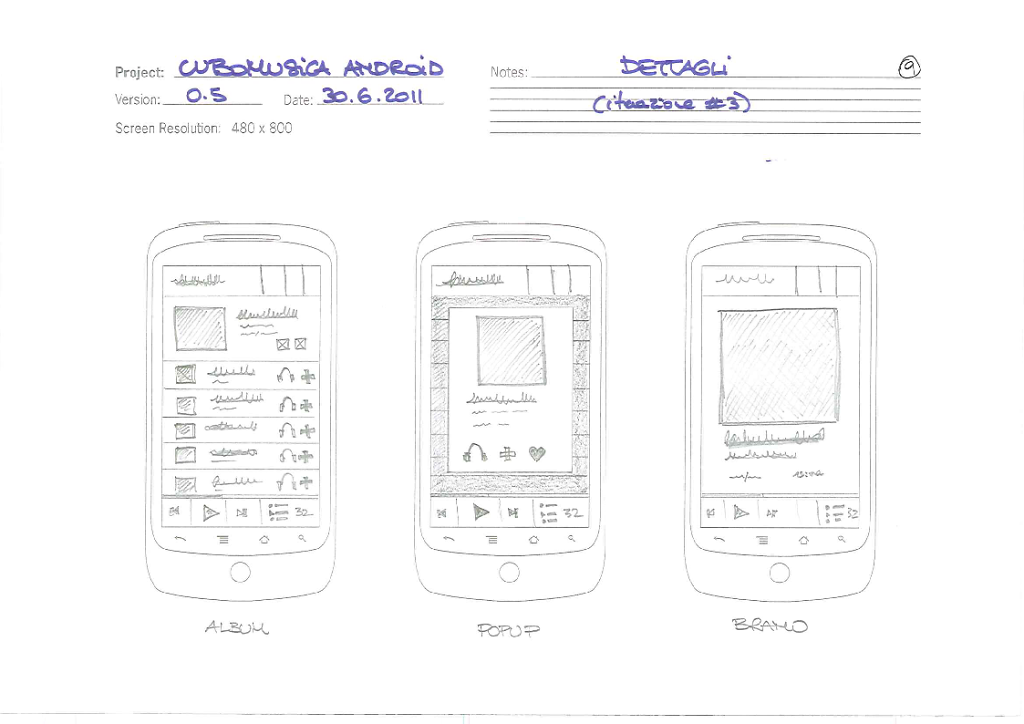 Project: CUBOMUSICA ANDROID
Version: 0.5 Date: 30.6.2011
Screen Resolution: 480 x 800
Notes: DETTAGLI 9
(iterazione #3)
32
32
32
ALBUM
POPUP
BRANO